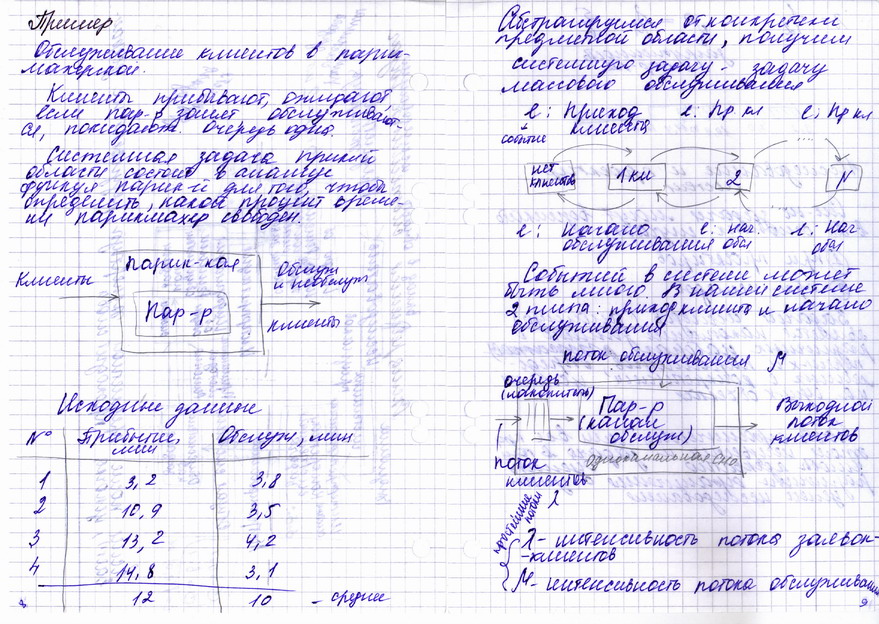 Пример
Обслуживание клиентов в парик-
махерской.
Клиенты прибывают, ожидают
если пар-р занят обслуживают-
ся, покидают. Очередь одна.
Системная задача прикй
области состоит в анализе
функц парик-й для того, чтобы
определить, какой процент време-
ни парикмахер свободен.
Клиенты
парик-кая
Пар-р
Обслуж
и необслуж
клиенты
Исходные данные
№ Прибытие, мин Обслуж, мин
1 3,2 3,8
2 10,9 3,5
3 13,2 4,2
4 14,8 3,1
12 10 - среднее
8
Абстрагируемся от конкретной
предметной области, получим
системную задачу - задачу
массового обслуживания
e: Приход клиента e: Пр кл e: Пр кл
событие
нет клиентов 1 кл 2 N
e: Начало обслуживания e: нач. обсл e: нач обсл
Событий в системе может
быть много. В нашей системе
2 типа: приход клиента и начало
обслуживания
поток обслуживания μ
очередь
(накопитель)
Пар-р
(канал
обслуж)
Выходной
поток
клиентов
одноканальная смо
поток
клиентов
λ
простейшие
потоки
λ - интенсивность потока заявок-
-клиентов
μ - интенсивность потока обслуживания
9